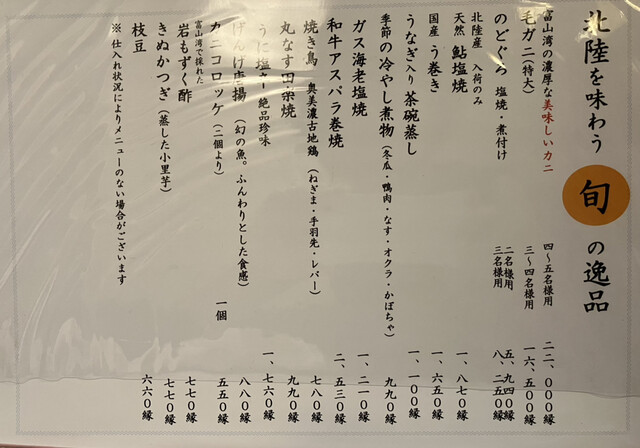 北陸を味わう 旬 の逸品
富山湾の濃厚な美味しいカニ 四~五名様用 二二、〇〇〇縁
毛ガニ(特大) 三~四名様用 一六、五〇〇縁
のどぐろ 塩焼・煮付け 二名様用 五、九四〇縁
三名様用 八、二五〇縁
北陸産 入荷のみ
天然 鮎塩焼 一、八七〇縁
国産 う巻き 一、六五〇縁
うなぎ入り茶碗蒸し 一、一〇〇縁
季節の冷やし煮物(冬瓜・鴨肉・なす・オクラ・かぼちゃ) 九九〇縁
ガス海老塩焼 一、二一〇縁
和牛アスパラ巻焼 二、五三〇縁
焼き鳥 奥美濃古地鶏(ねぎま・手羽先・レバー) 七八〇縁
丸なす田楽焼 九九〇縁
うに塩 絶品珍味 一、七六〇縁
げんげ唐揚(幻の魚。ふんわりとした食感) 八八〇縁
カニコロッケ(二個より) 一個 五五〇縁
富山湾で採れた
岩もずく酢 七七〇縁
きぬかつぎ(蒸した小里芋) 七七〇縁
枝豆 六六〇縁
※仕入れ状況によりメニューのない場合がございます